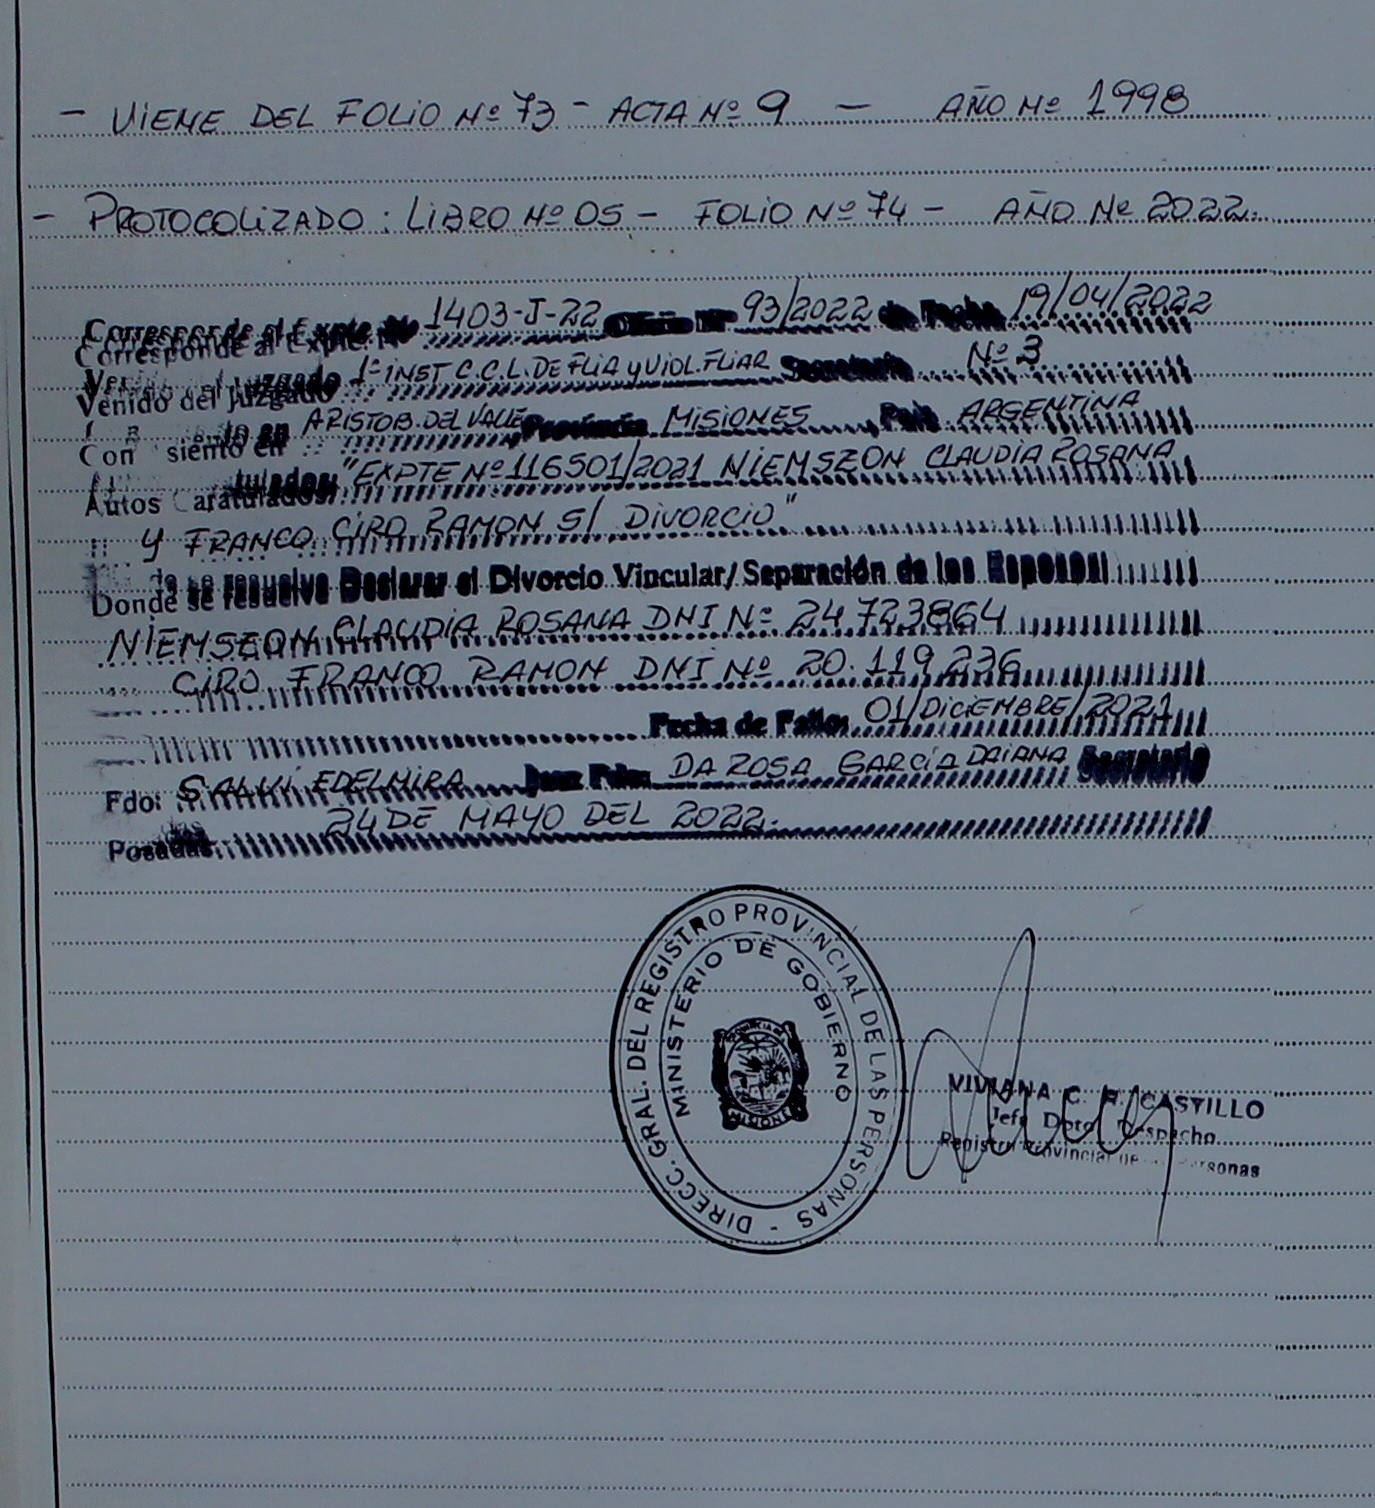 - VIENE DEL FOLIO Nº 73 - ACTA Nº 9 - AÑO Nº 1998
- PROTOCOLIZADO: LIBRO Nº 05 - FOLIO Nº 74 - AÑO Nº 2022.
Corresponde al Expte. Nº 1403-J-22 Oficio Nº 93/2022 de Fecha 19/04/2022
Venido del Juzgado 1º INST C.C.L. DE FLIA y VIOL. FLIAR Secretaría Nº 3
Con asiento en ARISTOB. DEL VALLE Provincia MISIONES País ARGENTINA
Autos Caratulados: "EXPTE Nº 116501/2021 NIEMSZON CLAUDIA ROSANA
y FRANCO CIRO RAMON S/ DIVORCIO"
Donde se resuelve Declarar el Divorcio Vincular/Separación de los Esposos:
NIEMSEON CLAUDIA ROSANA DNI Nº 24723864
CIRO FRANCO RAMON DNI Nº 20.119.236
Fecha de Fallo: 01/DICIEMBRE/2021
Fdo: SALVI EDELMIRA Juez Fdo: DA ROSA GARCÍA DAIANA Secretario
Posadas: 24 DE MAYO DEL 2022.
DIRECC. GRAL. DEL REGISTRO PROVINCIAL DE LAS PERSONAS -
MINISTERIO DE GOBIERNO
PROVINCIA DE
MISIONES
VIVIANA C. R. CASTILLO
Jefe Dpto. Despacho
Registro Provincial de Personas